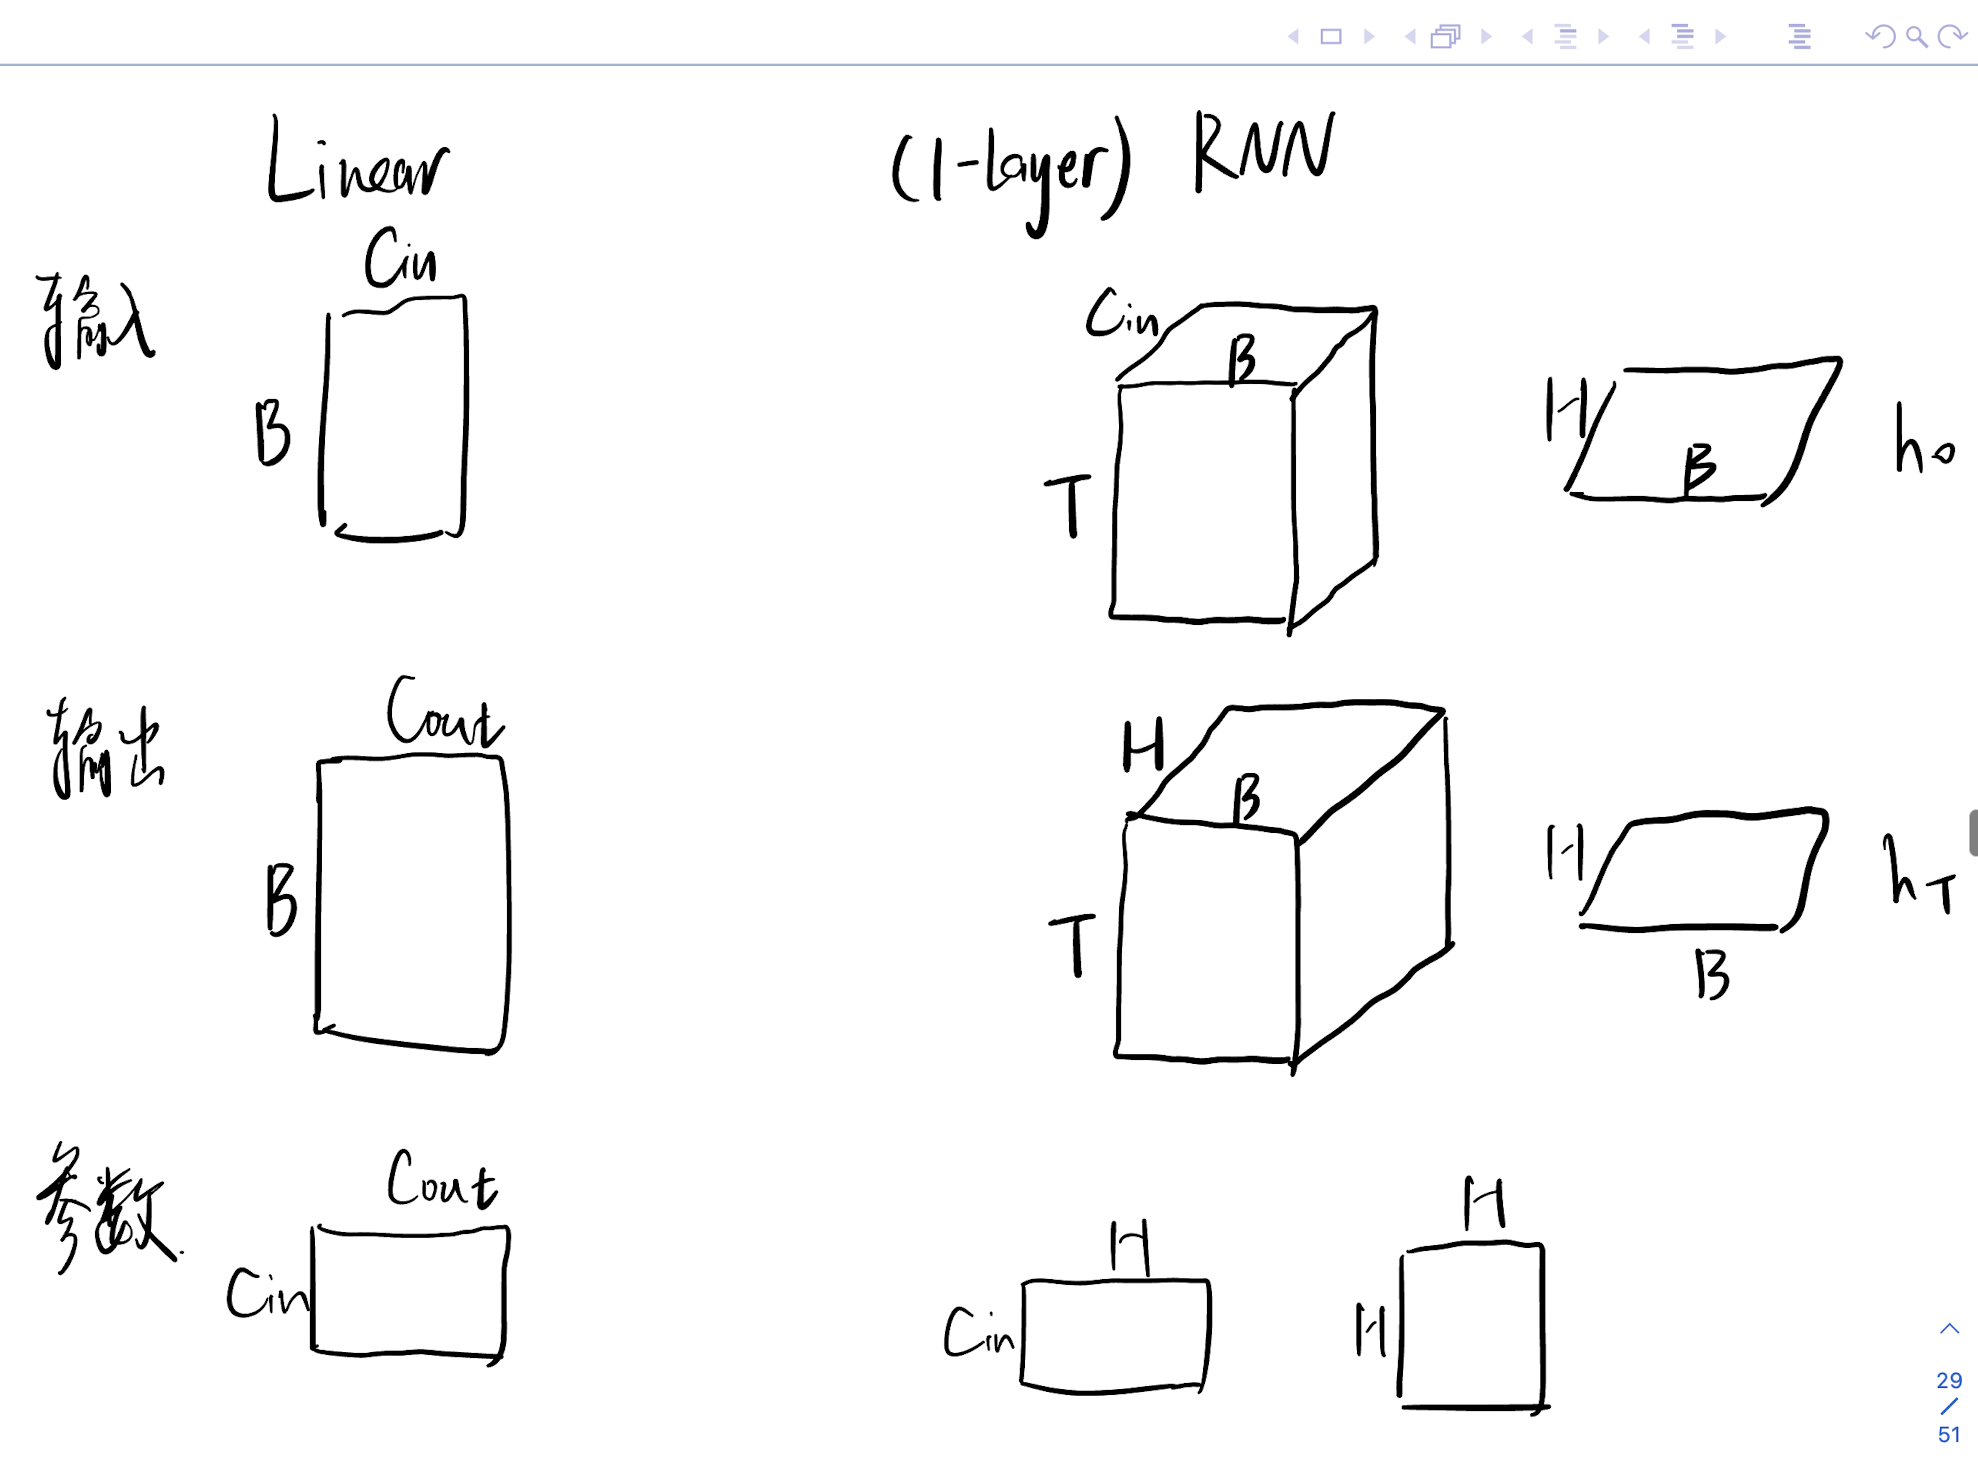 Linear
(1-layer) RNN
输入
Cin
B
Cin
B
T
H
B
h0
输出
Cout
B
H
B
T
H
B
hT
参数
Cout
Cin
H
Cin
H
H
29
/
51